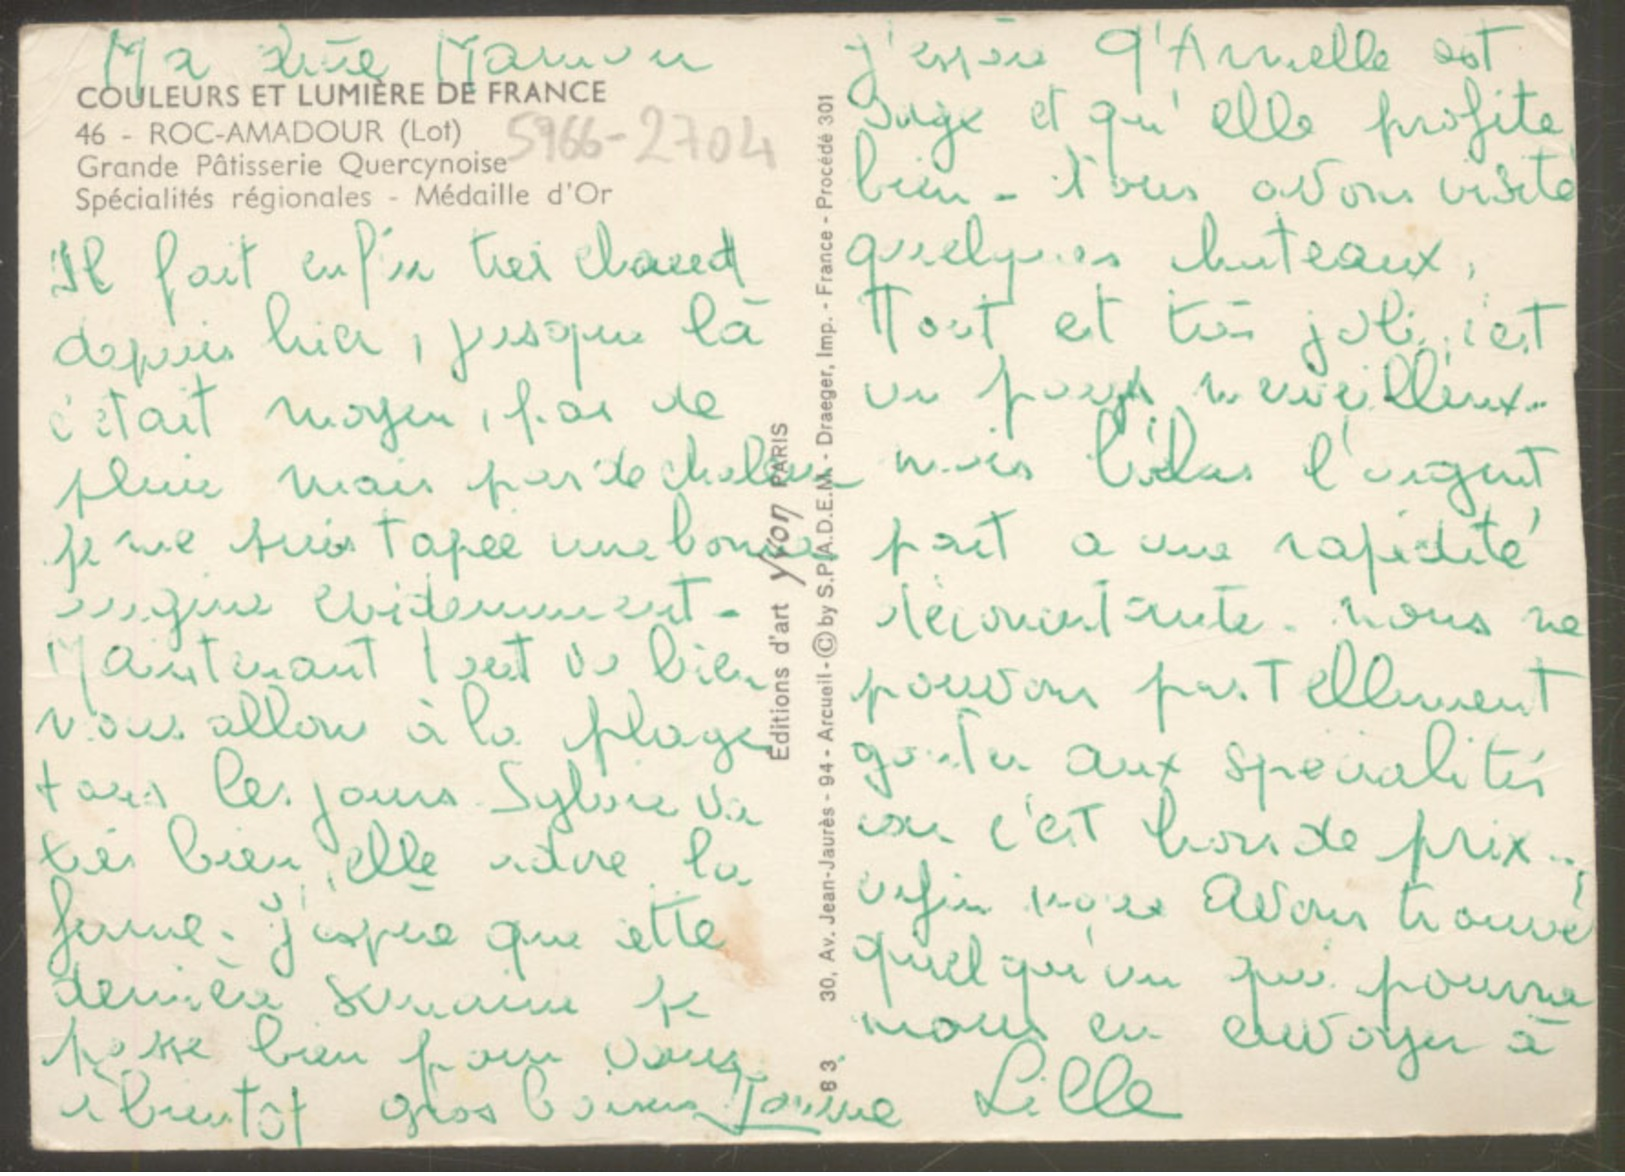 Ma chère Maman
COULEURS ET LUMIÈRE DE FRANCE
46 - ROC-AMADOUR (Lot)
Grande Pâtisserie Quercynoise
Spécialités régionales - Médaille d'Or
5966-2704
Il fait enfin très chaud
depuis hier, jusque là
c'était moyen, pas de
pluie mais pas de chaleur
je me suis tapée une bonne
angine evidemment -
Maintenant tout va bien
nous allons à la plage
tous les jours. Sylvie va
très bien, elle adore la
ferme. J'espère que cette
dernière semaine se
passe bien pour vous
à bientôt gros baisers
Éditions d'art Yvon PARIS
30, Av. Jean-Jaurès - 94 - Arcueil - © by S.P.A.D.E.M. - Draeger, Imp. - France - Procédé 301
83
J'espère q'Armelle est
sage et qu'elle profite
bien - Nous avons visité
quelques chateaux,
Tout est très joli, c'est
un pays merveilleux...
mais hélas l'argent
part a une rapidité
déconcertante. nous ne
pouvons pas tellement
gouter aux spécialités
car c'est hors de prix...
enfin nous avons trouvé
quelqu'un qui pourra
nous en envoyer à
Lille